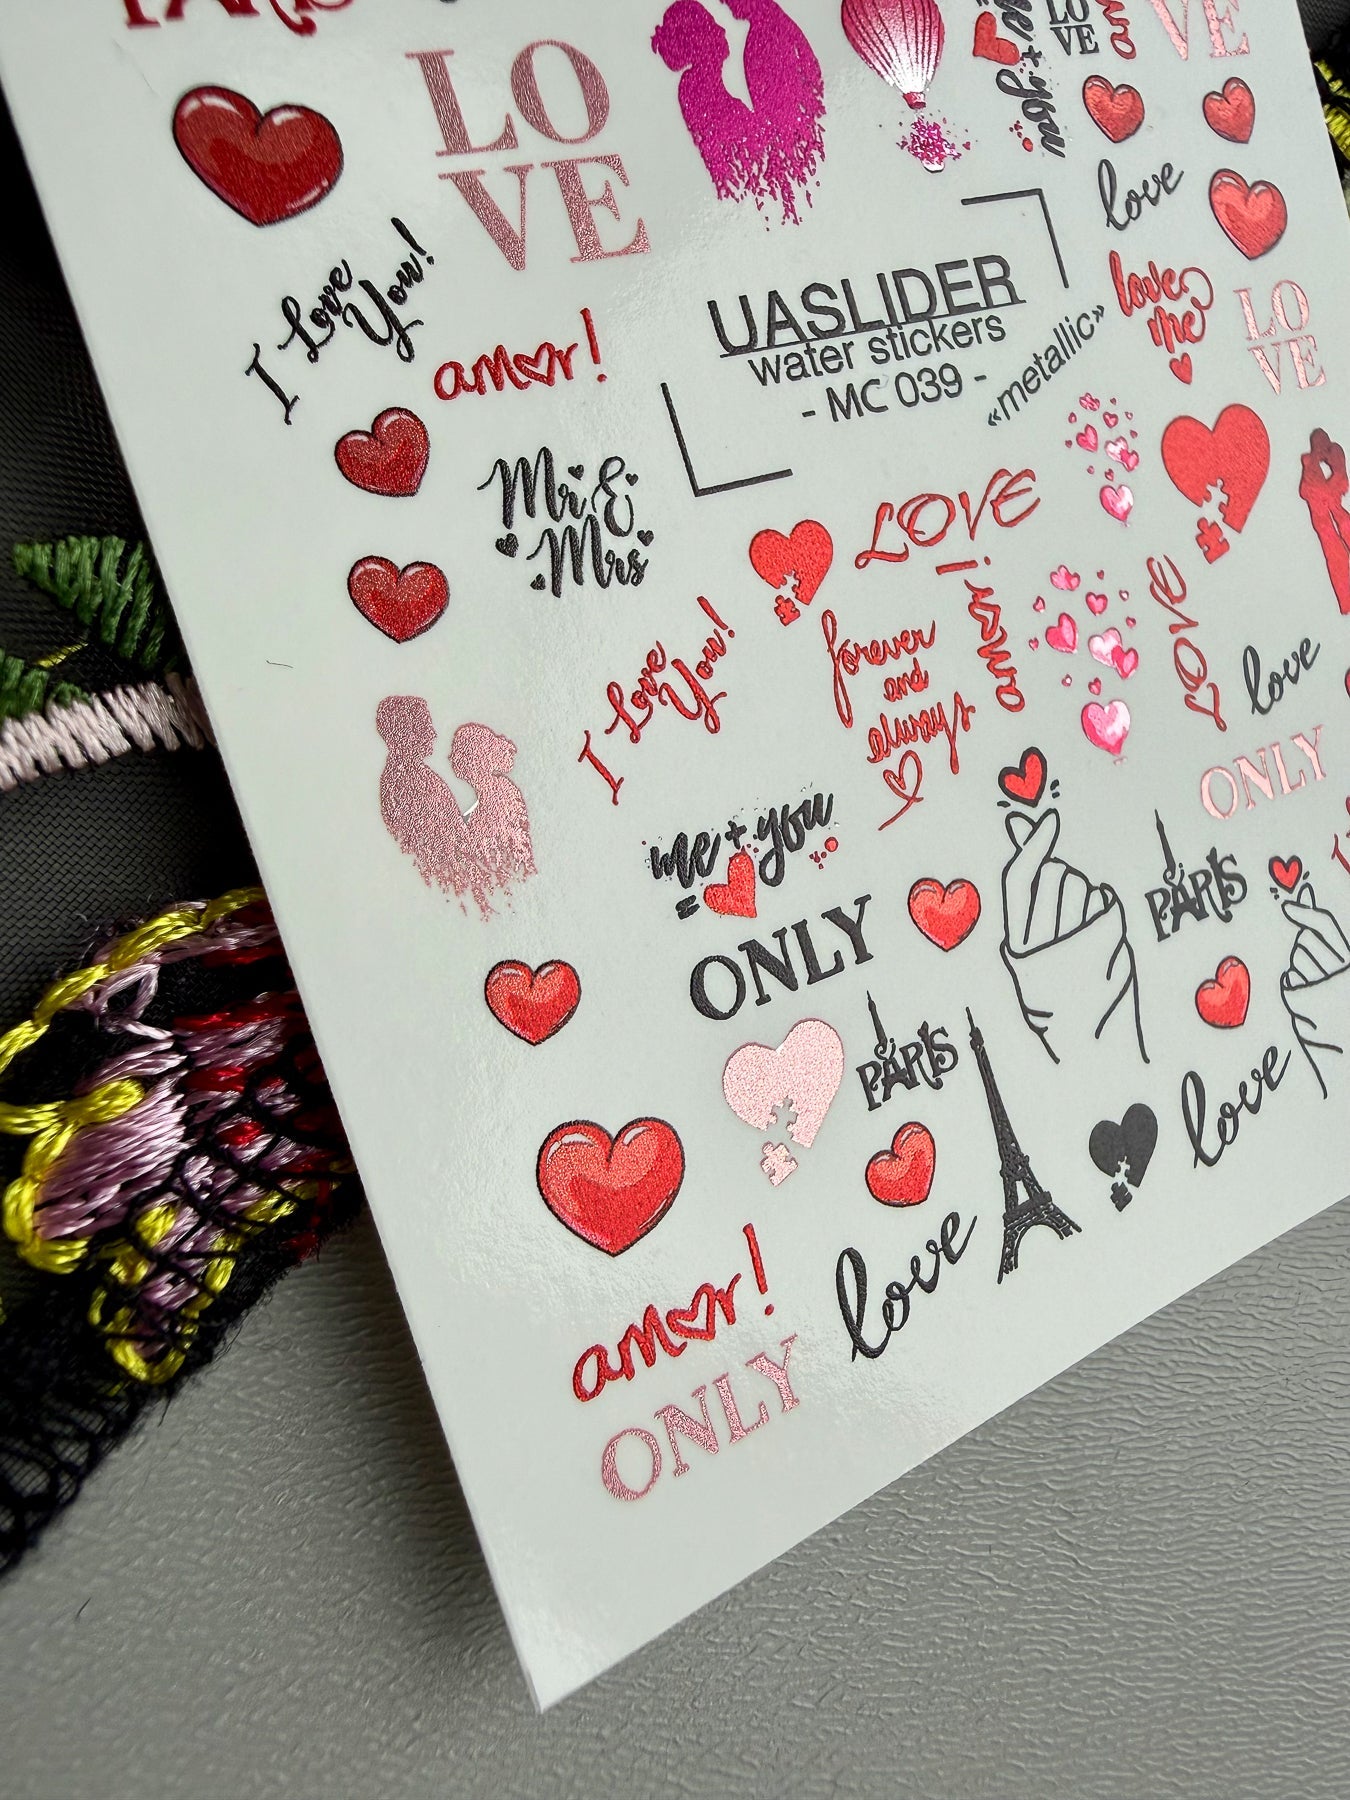 PARIS
LO
VE
I Love
You!
amor!
Mr &
Mrs
UASLIDER
water stickers
- MC 039 -
«metallic»
me + you
LO
VE
am
VE
love
love
me
LO
VE
LOVE
amor!
forever
and
always
I Love
You!
LOVE
love
ONLY
me + you
=
ONLY
PARIS
PARIS
love
love
amor!
ONLY